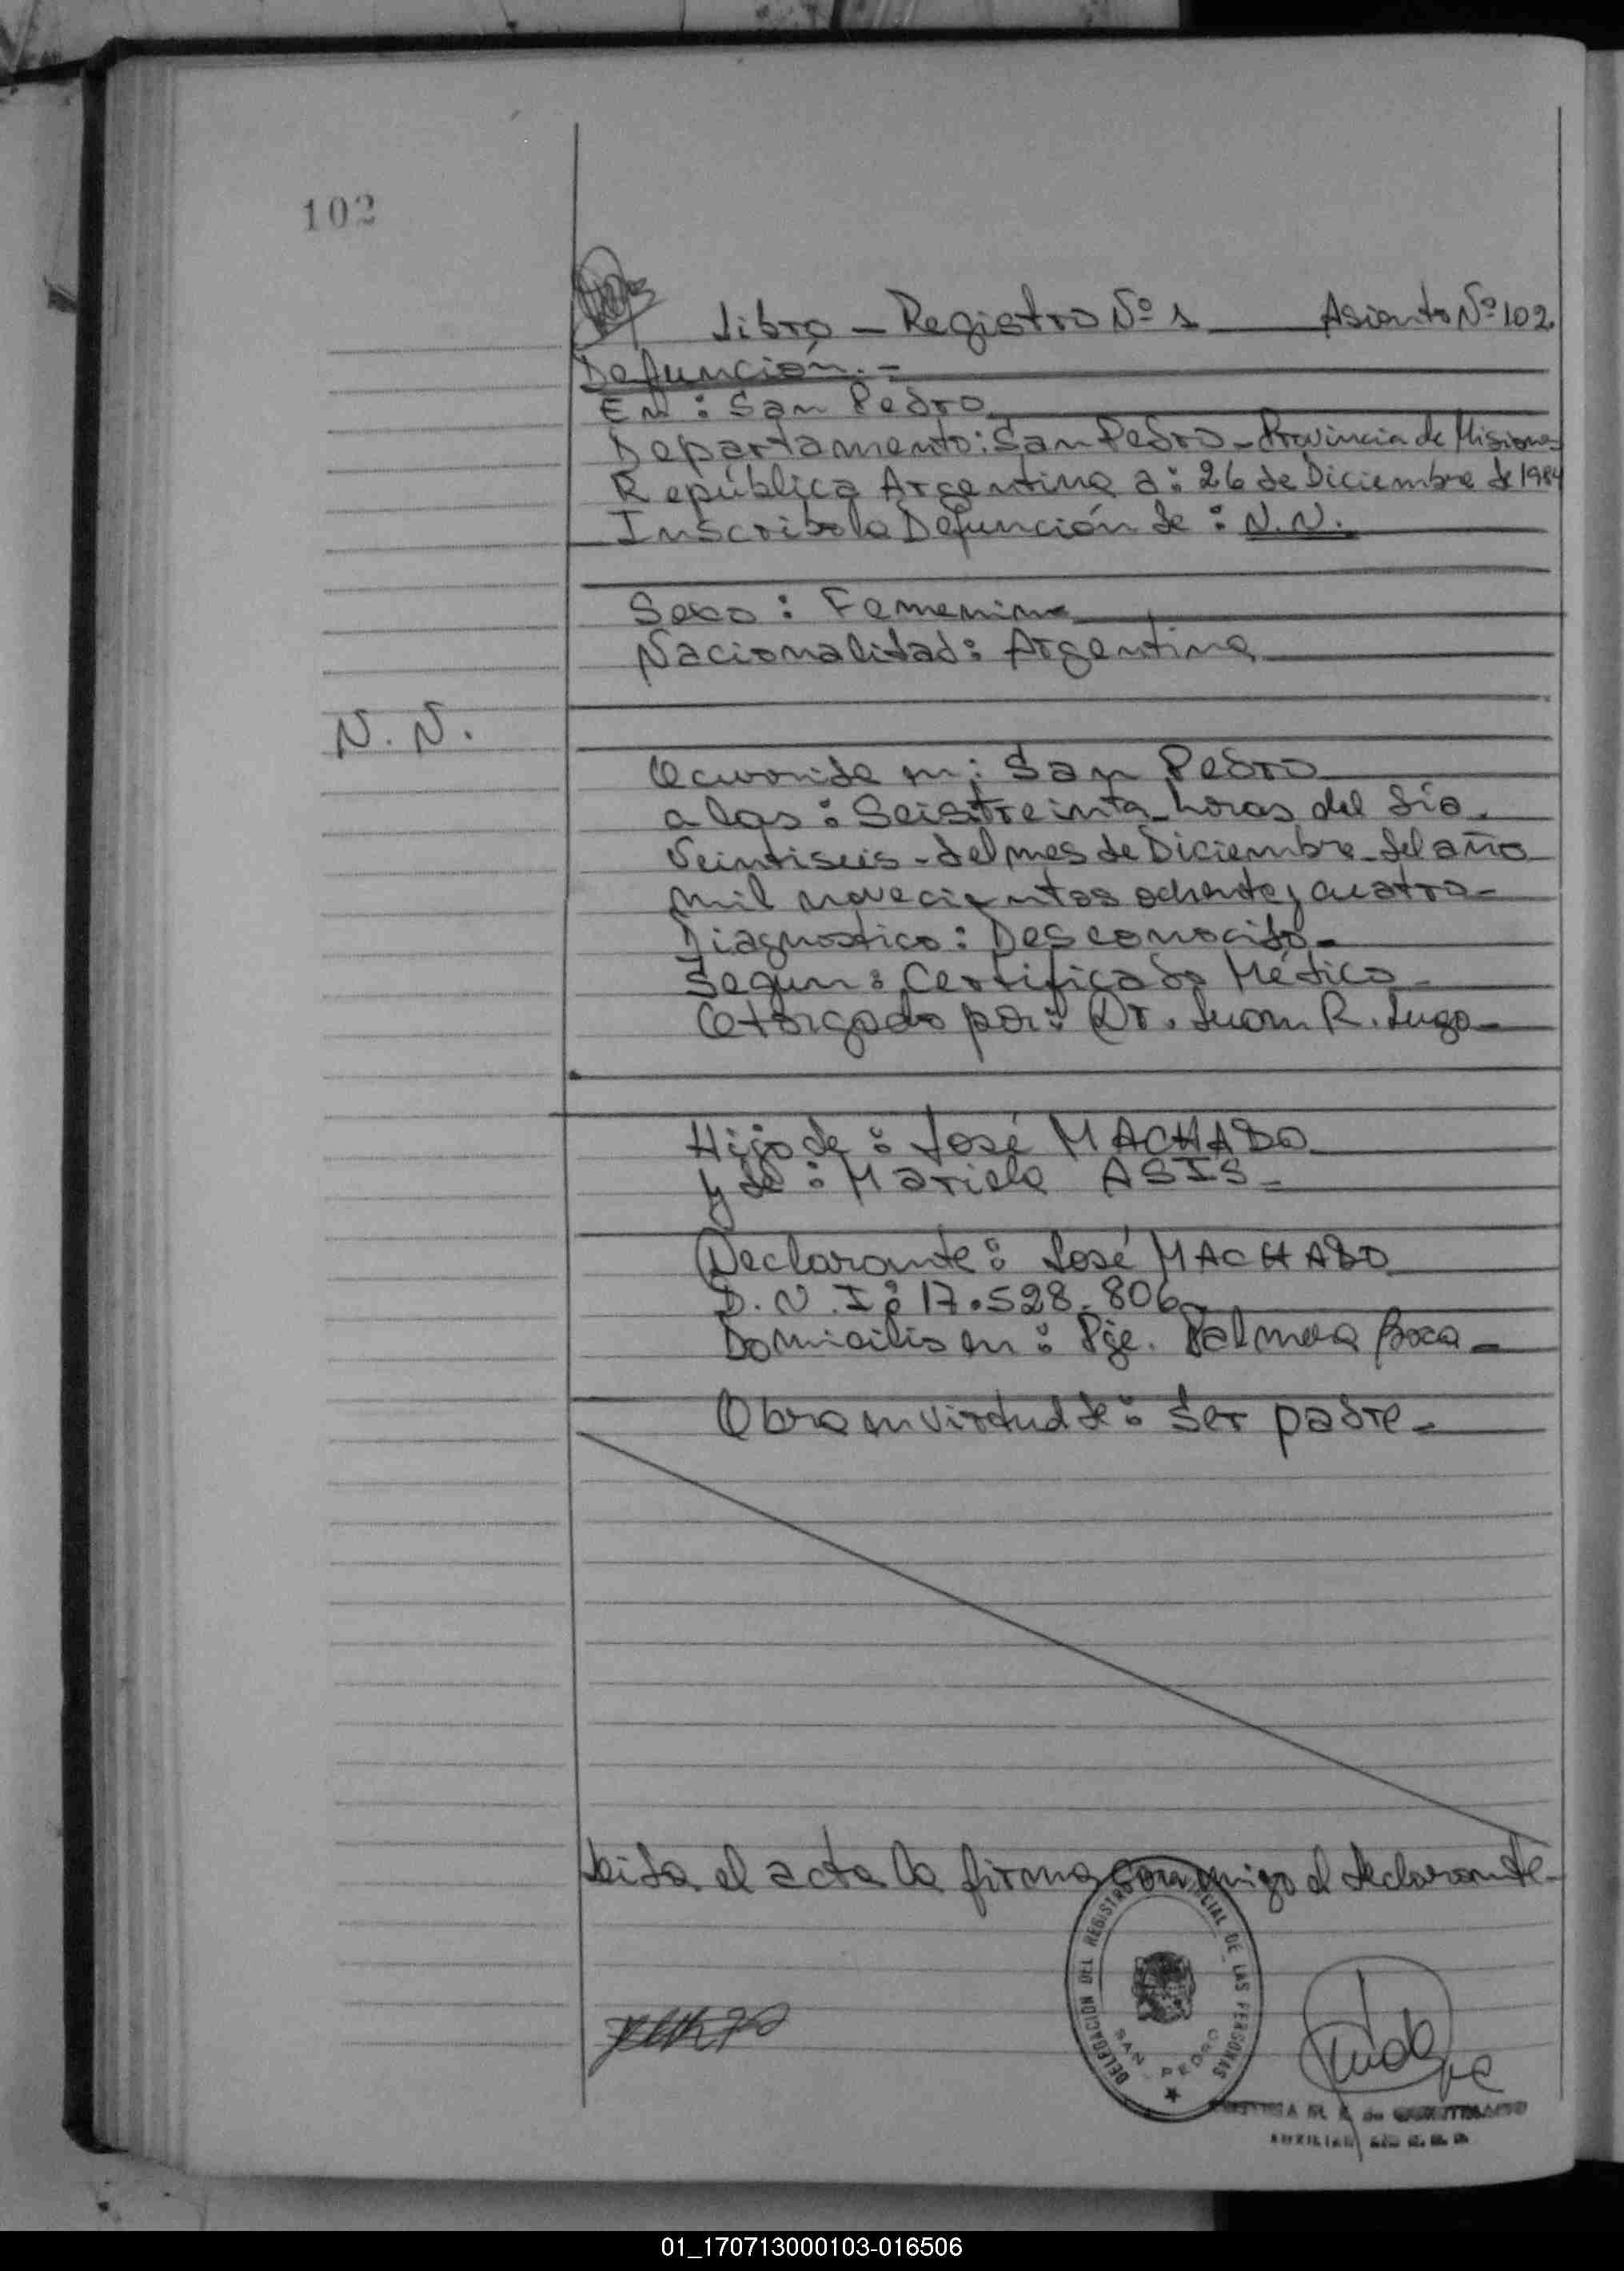 102
Libro - Registro Nº 1 Asiento Nº 102
Defunción.-
En : San Pedro
Departamento: San Pedro - Provincia de Misiones
República Argentina a: 26 de Diciembre de 1984
Inscribo la Defunción de : N.N.
Sexo : Femenino
Nacionalidad: Argentina
N. N.
Ocurrida en : San Pedro
a las : Seis treinta horas del día
Veintiseis - del mes de Diciembre - del año
mil novecientos ochenta y cuatro -
Diagnostico : Desconocido -
Segun : Certificado Médico -
Otorgado por : Dr. Juan R. Lugo -
Hijo de : José MACHADO
y de : Mariela ASIS -
Declarante : José MACHADO
D.N.I: 17.528.806
Domicilio en : Pje. Palmera Boca -
Obra en virtud de : Ser padre -
Leida el acta la firma conmigo el declarante -
DELEGACION DEL REGISTRO PROVINCIAL DE LAS PERSONAS
SAN PEDRO
AUXILIAR
01_170713000103-016506